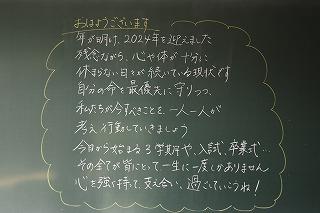 おはようございます
年が明け、2024年を迎えました
残念ながら、心や体が十分に
休まらない日々が続いている現状です
自分の命を最優先に守りつつ、
私たちが今すべきことを、一人一人が
考え行動していきましょう
今日から始まる3学期や、入試、卒業式…
その全てが皆にとって一生に一度しかありません
心を強く持って、支え合い、過ごしていこうね!